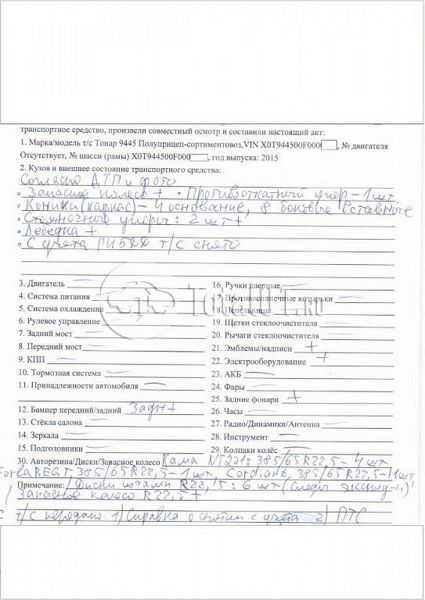 транспортное средство, произвели совместный осмотр и составили настоящий акт:
1. Марка/модель т/с Тонар 9445 Полуприцеп-сортиментовоз,VIN X0T944500F000 , № двигателя
Отсутствует, № шасси (рамы) X0T944500F000 , год выпуска: 2015
2. Кузов и внешнее состояние транспортного средства:
Согласно ДТП и фото
• Запасное колесо + • Противооткатный упор - 1 шт.
• Коники (каркас) - 4 основание, 8 боковые вставные
• Стояночные упоры: 2 шт +
• Лебедка +
• С учета т/с снято
3. Двигатель —
4. Система питания —
5. Система охлаждения —
6. Рулевое управление —
7. Задний мост —
8. Передний мост —
9. КПП —
10. Тормозная система —
11. Принадлежности автомобиля —
12. Бампер передний/задний Задн +
13. Стёкла салона —
14. Зеркала —
15. Подголовники —
16. Ручки дверные —
17. Противосолнечные козырьки —
18. Пепельница —
19. Щетки стеклоочистителя —
20. Рычаги стеклоочистителя —
21. Эмблемы/надписи —
22. Электрооборудование +
23. АКБ —
24. Фары —
25. Задние фонари +
26. Часы —
27. Радио/Динамики/Антенна —
28. Инструмент —
29. Колпаки колёс —
TotalDTP.ru
30. Авторезина/Диски/Запасное колесо Кама NT201: 385/65 R22,5 - 4 шт
385/65 R22,5 - 1 шт. Cordiant, 385/65 R22,5 - 1 шт
Примечание: / Диски штамп R22,5: 6 шт (следы эксплу-и)
/ Запасное колесо R22,5 +
С т/с передано 1) Справка о снятии с учета 2) ПТС